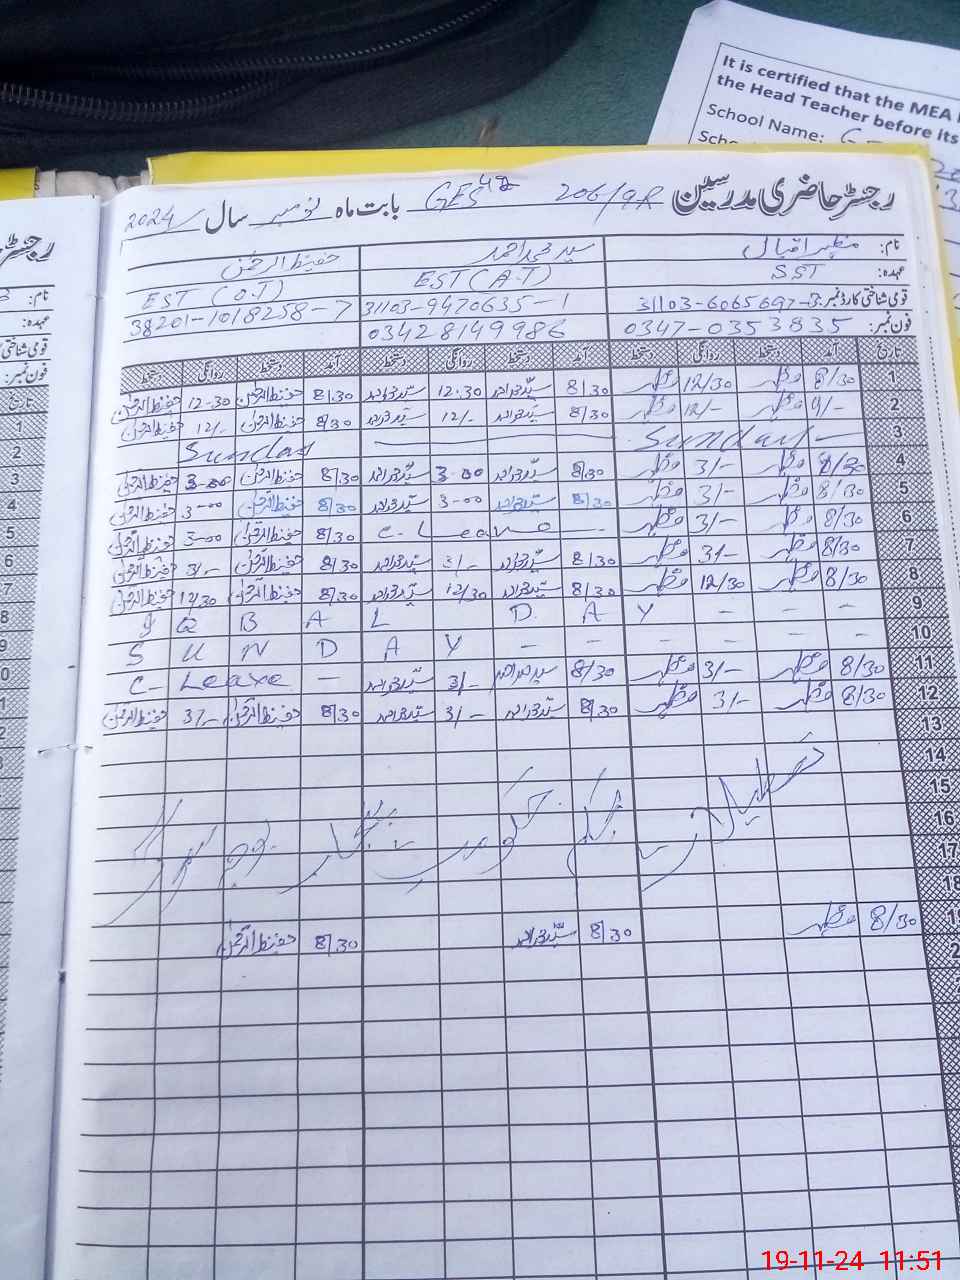 It is certified that the MEA
the Head Teacher before its
School Name:
رجسٹر حاضری مدرسین 206/9R GES بابت ماہ نومبر سال 2024
نام: مظہر اقبال سید محمد احمد حفیظ الرحمٰن
عہدہ: SST EST (A.T) EST (O.T)
قومی شناختی کارڈ نمبر: 31103-6065697-3 31103-9470635-1 38201-1018258-7
فون نمبر: 0347-0353835 03428149986
تاریخ آمد دستخط روانگی دستخط آمد دستخط روانگی دستخط آمد دستخط روانگی دستخط
1 8/30 مظہر 12/30 مظہر 8/30 سید محمد احمد 12.30 سید محمد احمد 8/30 حفیظ الرحمٰن 12-30 حفیظ الرحمٰن
2 مظہر 12/- مظہر 8/30 سید محمد احمد 12/- سید محمد احمد 8/30 حفیظ الرحمٰن 12/- حفیظ الرحمٰن
3 Sunday Sunday
4 8/30 مظہر 3/- مظہر 8/30 سید محمد احمد 3-00 سید محمد احمد 8/30 حفیظ الرحمٰن 3-00 حفیظ الرحمٰن
5 8/30 مظہر 3/- مظہر 8/30 سید محمد احمد 3-00 سید محمد احمد 8/30 حفیظ الرحمٰن 3-00 حفیظ الرحمٰن
6 8/30 مظہر 3/- مظہر C-Leave 8/30 حفیظ الرحمٰن 3-00 حفیظ الرحمٰن
7 8/30 مظہر 3/- مظہر 8/30 سید محمد احمد 3/- سید محمد احمد 8/30 حفیظ الرحمٰن 3/- حفیظ الرحمٰن
8 8/30 مظہر 12/30 مظہر 8/30 سید محمد احمد 12/30 سید محمد احمد 8/30 حفیظ الرحمٰن 12/30 حفیظ الرحمٰن
9 I Q B A L D A Y - - -
10 S U N D A Y - - - - - -
11 8/30 مظہر 3/- مظہر 8/30 سید محمد احمد 3/- سید محمد احمد C-Leave -
12 8/30 مظہر 3/- مظہر 8/30 سید محمد احمد 3/- سید محمد احمد 8/30 حفیظ الرحمٰن 3/- حفیظ الرحمٰن
13
14
15
16
17
18
8/30 مظہر 8/30 سید محمد احمد 8/30 حفیظ الرحمٰن
19-11-24 11:51